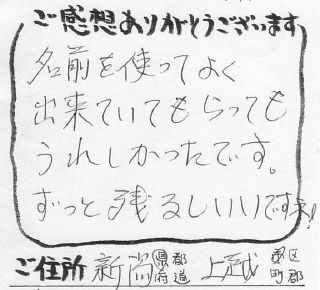 ご感想ありがとうございます
名前を使ってよく
出来ていてもらっても
うれしかったです。
ずっと残るしいいですネ!
ご住所 新潟 県都府道 上越 市区町郡